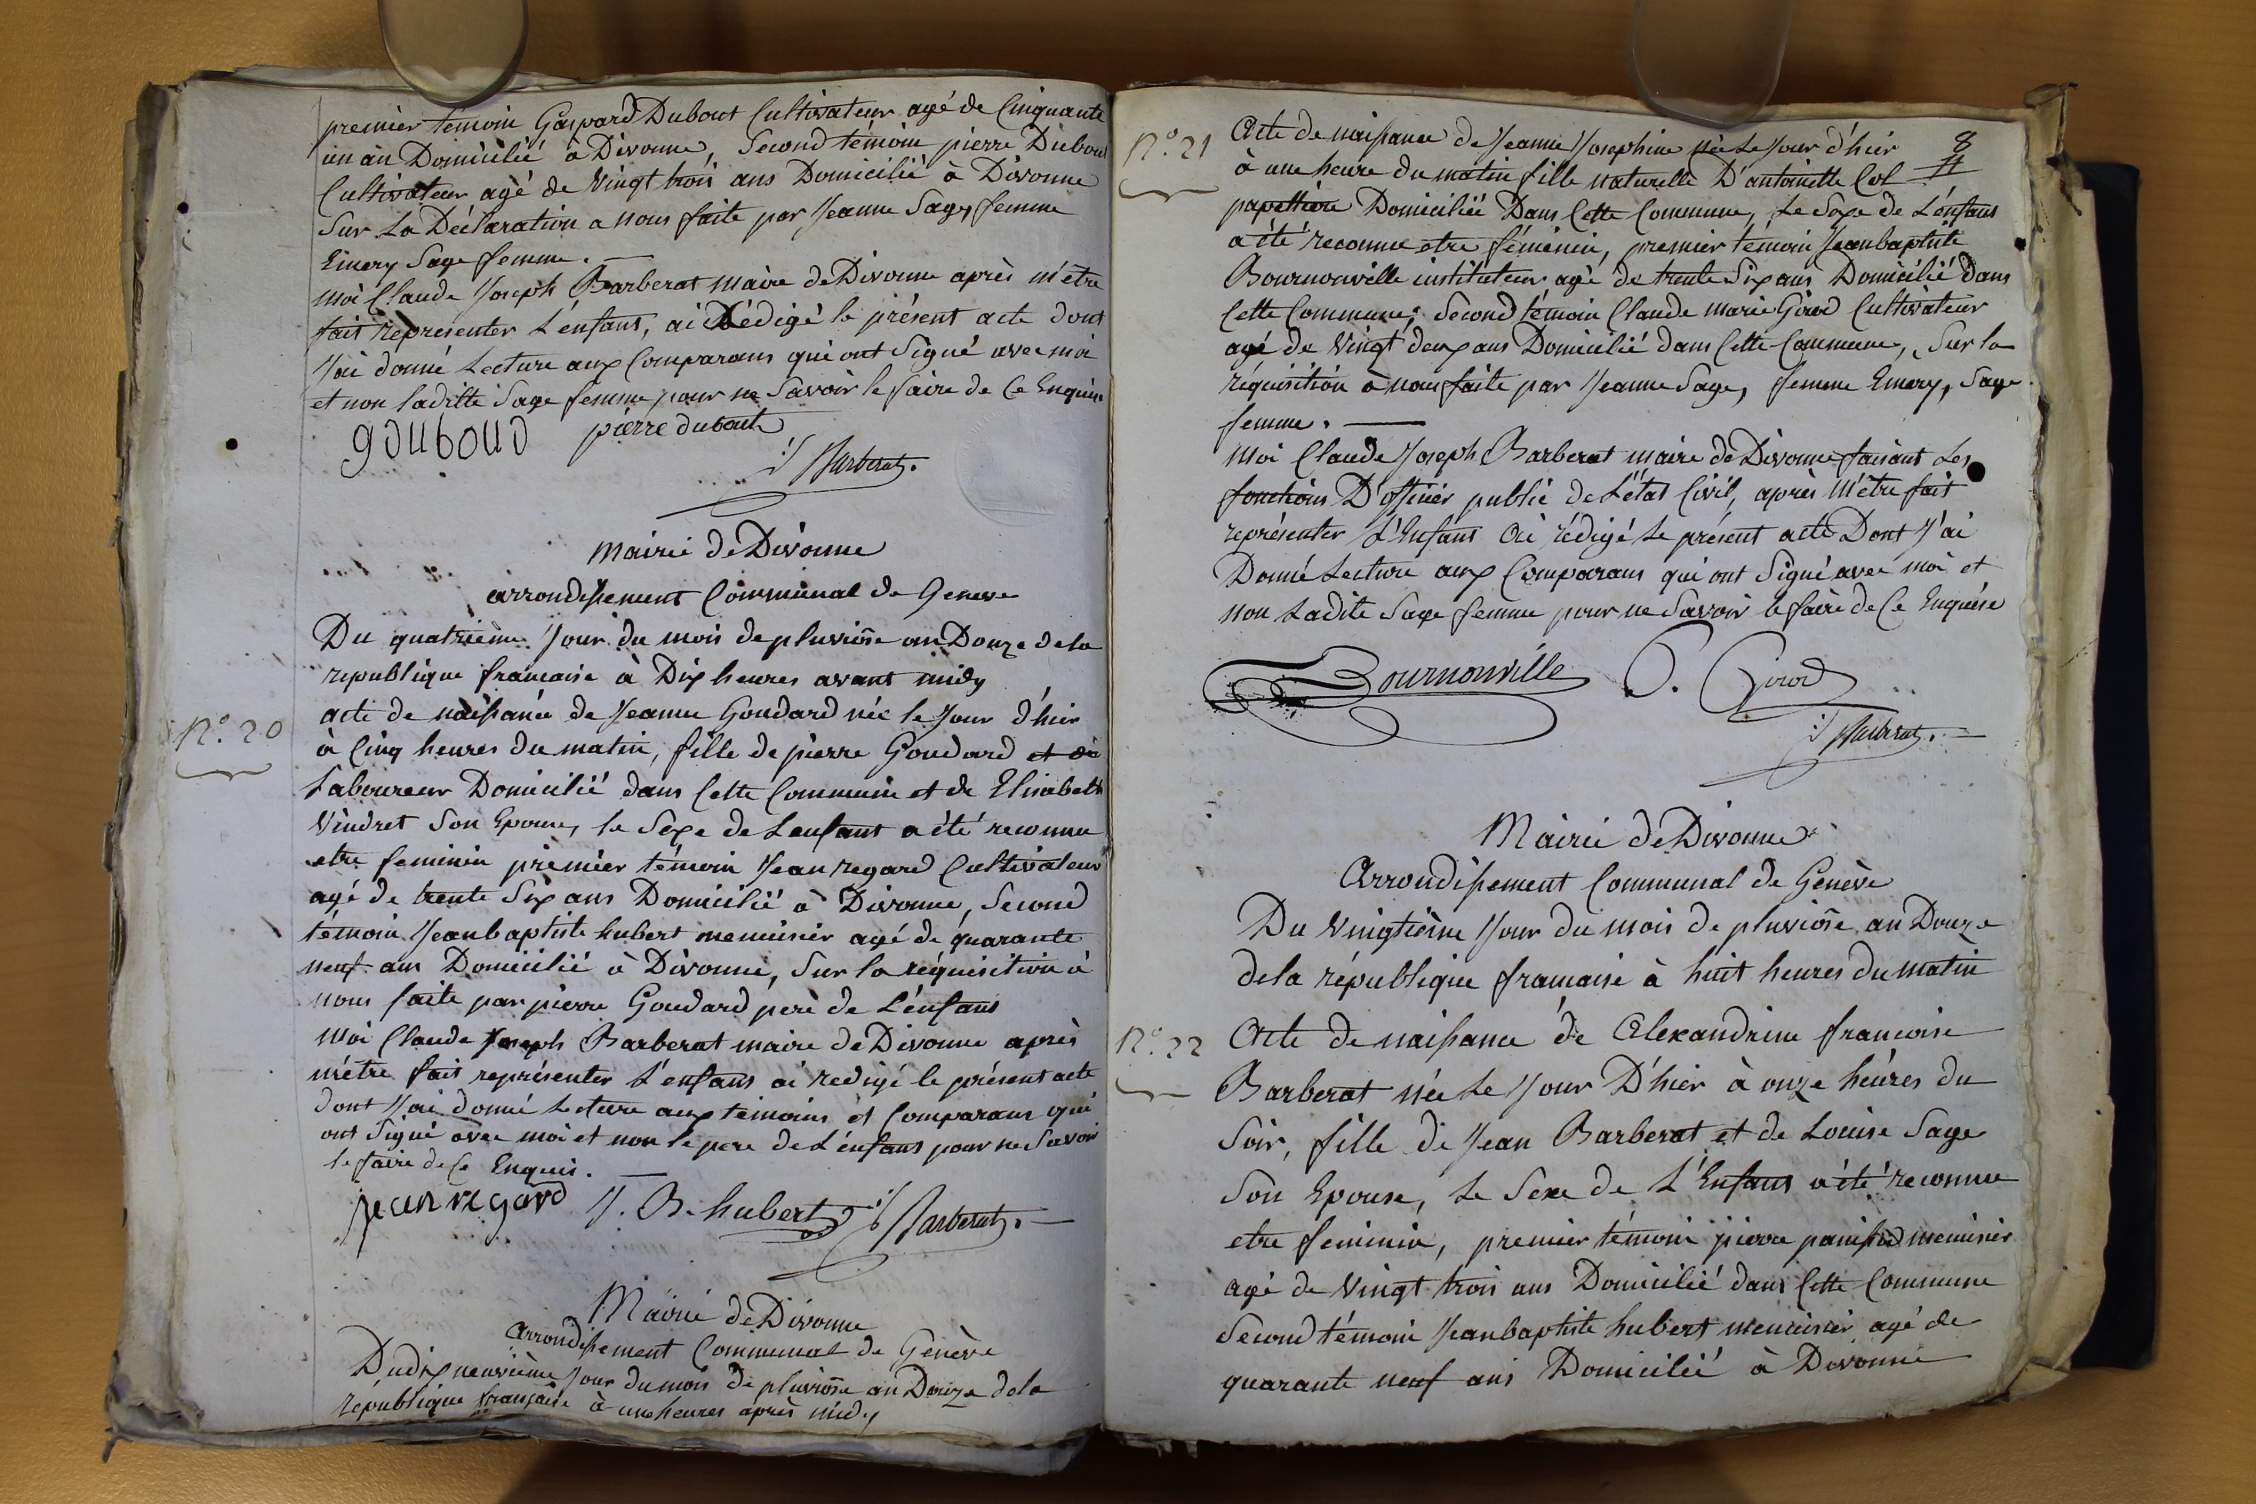 premier témoin Gaspard Dubout Cultivateur agé de Cinquante
un an Domicilié à Divonne, Second témoin pierre Dubout
Cultivateur agé de vingt trois ans Domicilié à Divonne
Sur La Déclaration a nous faite par Jeanne Sage, femme
Emery Sage femme.
moi Claude Joseph Barberat maire de Divonne après m'être
fait représenter L'enfant, ai Rédigé le présent acte dont
J'ai donné Lecture aux Comparans qui ont Signé avec moi
et non laditte Sage femme pour ne Savoir le faire de Ce Enquise
gduboud pierre dubout
Barberat.
Mairie de Divonne
arrondissement Communal de Geneve
Du quatrième Jour du mois de pluviôse an Douze de la
republique francaise à Dix heures avant midy
N.º 20
acte de naissance de Jeanne Goudard née le Jour d'hier
à Cinq heures du matin, fille de pierre Goudard et de
Laboureur Domicilié dans Cette Commune et de Elisabeth
Vindret Son Epouse, le Sexe de Lenfant a été reconnu
etre feminin premier témoin Jean regard Cultivateur
agé de trente Six ans Domicilié à Divonne, Second
témoin Jeanbaptiste hubert menuisier agé de quarante
neuf ans Domicilié à Divonne, Sur la réquisition à
nous faite par pierre Goudard père de L'enfans
Moi Claude Joseph Barberat maire de Divonne après
m'être fait représenter L'enfans ai redigé le présent acte
dont J'ai donné Lecture aux témoins et Comparans qui
ont Signé avec moi et non le pere de L'enfans pour ne Savoir
le faire de Ce Enquis.
jean regard J. B. hubert Barberat.
Mairie de Divonne
Arrondissement Communal de Genève
Du dix neuvième Jour du mois de pluviôse an Douze de la
république française à une heures après midy
8
N.º 21
Acte de naissance de Jeanne Josephine née Le Jour d'hier
à une heure du matin fille naturelle D'antoinette Col
papettière Domiciliée Dans Cette Commune, Le Sexe de L'énfans
a été reconnu etre féminin, premier témoin Jeanbaptiste
Bournonville instituteur agé de trente Six ans Domicilié dans
Cette Commune, Second témoin Claude marie Girod Cultivateur
agé de Vingt deux ans Domicilié dans Cette Commune, Sur la
réquisition à nous faite par Jeanne Sage, femme Emery, Sage
femme.
Moi Claude Joseph Barberat maire de Divonne faisant Les
fonctions D'officier public de L'état Civil, après M'être fait
représenter L'Enfans ai rédigé Le présent acte Dont J'ai
Donné Lecture aux Comparans qui ont Signé avec moi et
non Ladite Sage femme pour ne Savoir le faire de Ce Enquise
Bournonville C. Girod
Barberat.
Mairie de Divonne
Arrondissement Communal de Genève
Du Vingtième Jour du mois de pluviôse an Douze
de la république francaise à huit heures du matin
N.º 22
Acte de naissance de Alexandrine francoise
Barberat née Le Jour D'hier à onze heures du
Soir, fille de Jean Barberat et de Louise Sage
Son Epouse, Le Sexe de L'Enfans a été reconnu
etre feminin, premier témoin pierre panissod menuisier
agé de Vingt trois ans Domicilié dans Cette Commune
Second témoin Jeanbaptiste hubert menuisier agé de
quarante neuf ans Domicilié à Divonne